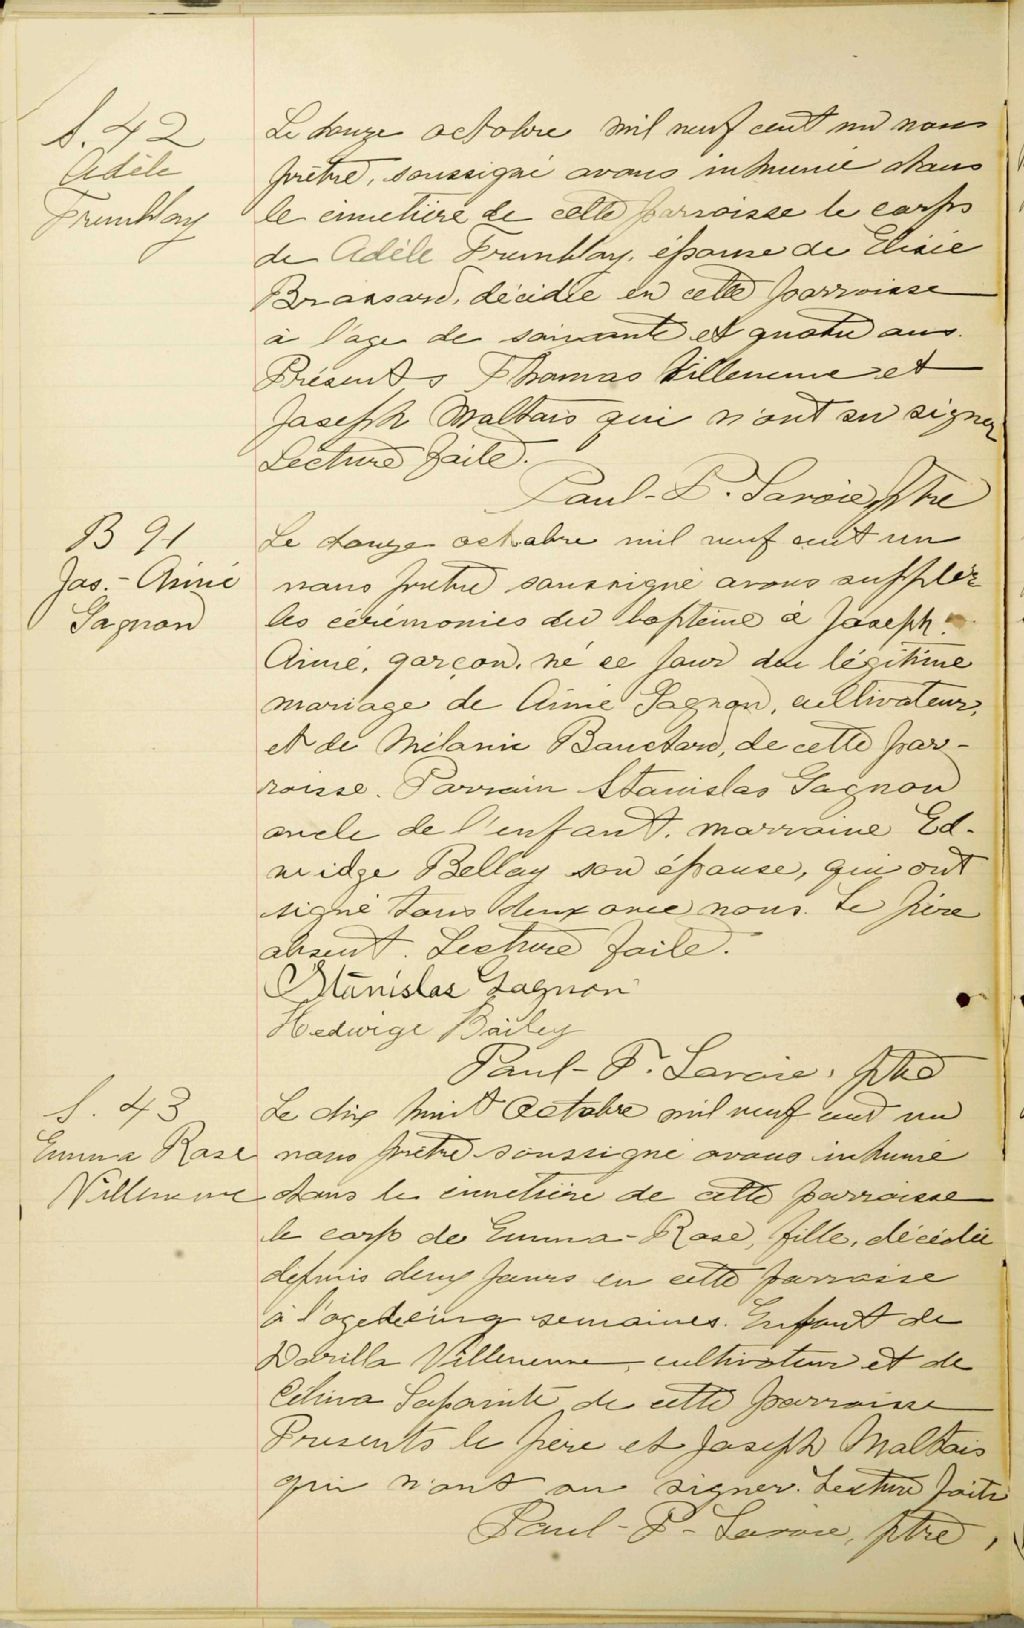 S. 42
Adèle
Tremblay
Le douze octobre mil neuf cent un nous
prêtre, soussigné avons inhumé dans
le cimetière de cette parroisse le corps
de Adèle Tremblay, épouse de Elisée
Brassard, décédée en cette parroisse
à l'age de soixante et quatre ans.
Présents Thomas Villeneuve et
Joseph Maltais qui n'ont su signer
Lecture faite.
Paul-P. Savoie, ptre
B 91
Jos.-Aimé
Gagnon
Le douze octobre mil neuf cent un
nous prêtre soussigné avons suppléé
les cérémonies du baptême à Joseph.
Aimé, garçon, né ce jour du légitime
mariage de Aimé Gagnon, cultivateur,
et de Mélanie Bouchard, de cette par-
roisse. Parrain Stanislas Gagnon
oncle de l'enfant, marraine Ed-
widge Bellay son épouse, qui ont
signé tous deux avec nous. Le père
absent. Lecture faite.
Stanislas Gagnon
Hedwige Bailey
Paul-P. Savoie, ptre
S. 43
Emma Rose
Villeneuve
Le dix huit Octobre mil neuf cent un
nous prêtre soussigné avons inhumé
dans le cimetière de cette parroisse
le corp de Emma-Rose, fille, décédée
depuis deux jours en cette parroisse
à l'age de cinq semaines. Enfant de
Dorilla Villeneuve, cultivateur et de
Célina Lapointe de cette parroisse
Presents le père et Joseph Maltais
qui n'ont su signer. Lecture faite
Paul-P-Savoie, ptre,